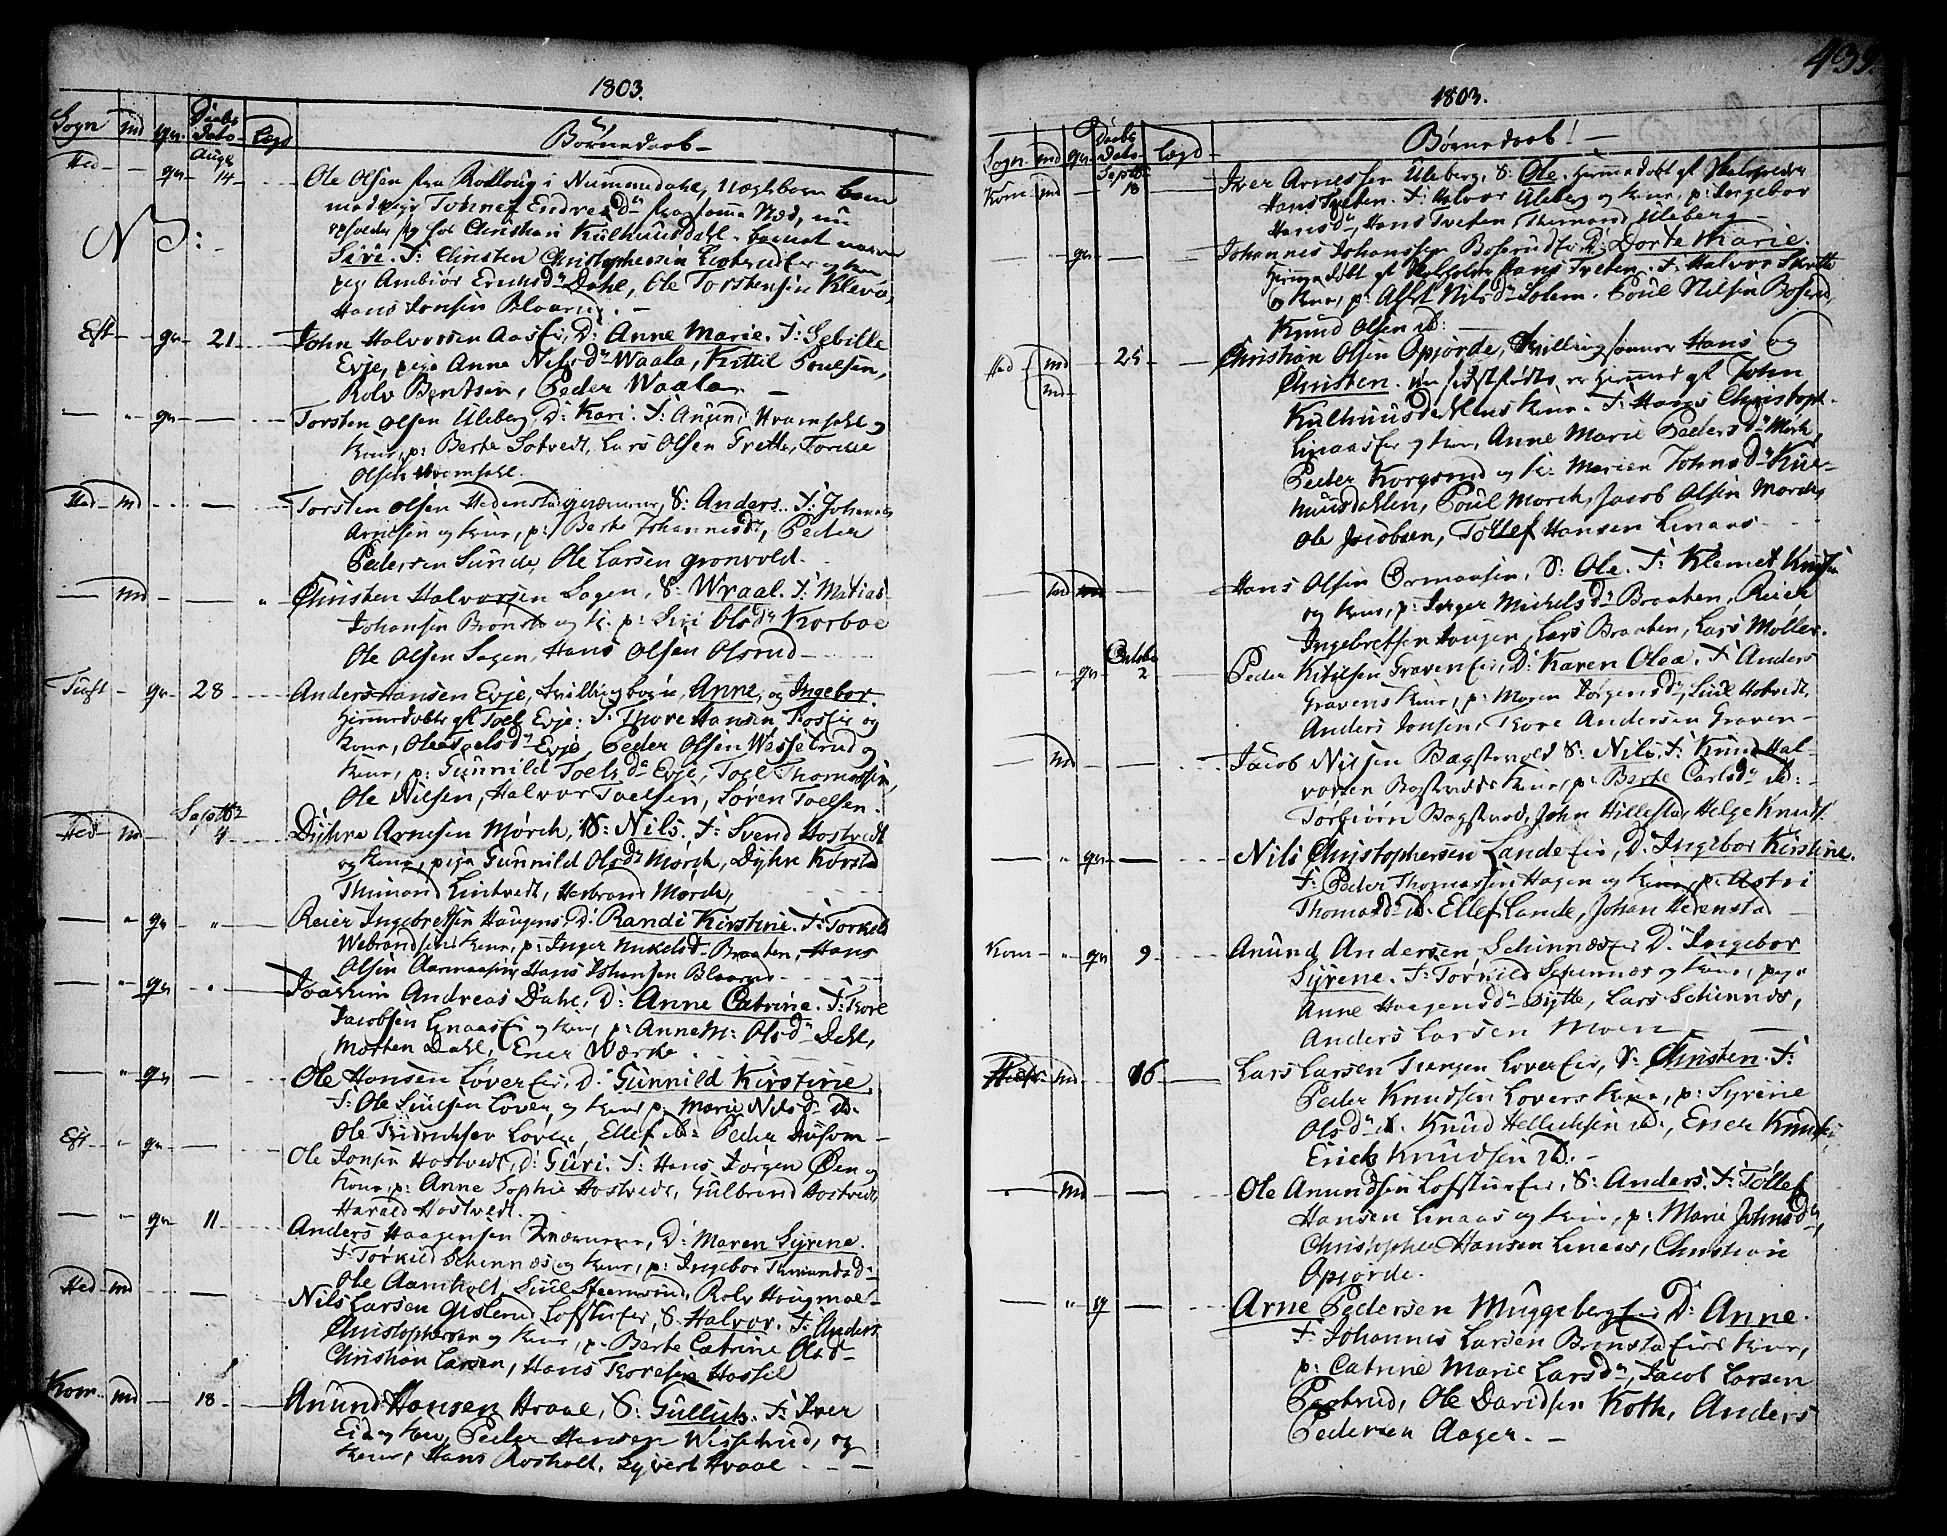 1803.
Sogn md qv. Daabs Dato Lægd Børnedaab
Hed qv Aug. 14 Ole Olsen fra Rolloug i Nummedahl, uægte barn
med pige Tonnef Endresdr fra samme Sted, nu
for Christian Kulhuusdahl. barnet navn
Siri. F: Christen Christophersen og kone
pige Ambiør Ericksdr Dahl, Ole Torstensen Kleva,
Hans Jonsen Blaarud.
NB:
Eft qv 21 John Halvorsen Aasejer, D: Anne Marie. F: Gebille
Evje, pige Anne Nilsdr Waala, Kittil Poulsen,
Rolv Bentsen, Peder Waala.
qv Torsten Olsen Uleberg, D: Kari. F: Anund Hvamsahl og
kone, p: Berte Sotvedt, Lars Olsen Trette, Torkil
Olsen Hvamsahl.
Hed md Torsten Olsen Hedenstad, S: Anders. F: Johannes
Arnesen og kone, p: Berte Johannesdr, Peder
Pedersen Sunde, Ole Larsen Grønvold.
md Christen Halvorsen Sagen, S: Wraal. F: Matias
Johansen og k. p: Siri Olsdr Korboe
Ole Olsen Sagen, Hans Olsen Olsrud
Tuft qv 28 Anders Hansen Evje, tvillingbørn, Anne, og Ingebor.
hjemmedøbte af Toel Evje. F: Thore Hansen Fosejer og
kone, Olea Toelsdr Evje, Peder Olsen Wessebrud og
kone, p: Gunnild Toelsdr Evje, Toel Thomassen,
Ole Nilsen, Halvor Toelsen, Søren Toelsen.
Hed md Septbr 4 Dyhre Arnesen Mørch, S: Nils. F: Svend Hostvedt
og kone, pige Gunnild Olsdr Mørch, Dyhre
Thimand Lintvedt, Herbrand Morch,
qv Reier Ingebretsen Haugens D: Randi Kirstine. F: Torkild
Webrandsen kone, p: Inger Mikelsdr Braaten, Hans
Olsen Aarmaasen, Hans Johansen Blaarud
qv Joachim Andreas Dahl, D: Anne Catrine. F: Tore
Jacobsen Linaasejer og kone, p: Anne M: Olsdr Dahl,
Morten Dahl, Ener Wærke.
qv Ole Hansen Løverejer, D: Gunnild Kirstine
F: Ole Siulsen Løver, og kone, p. Marie Nilsdr ib.
Ole Fridrichsen Løver, Ellef ib. Peder Husom
Eft qv Ole Jonsen Hostvedt, D: Guri. F: Hans Jørgen Øen og
kone, p: Anne Sophie Hostvedt, Gulbrand Hostvedt,
Harald Hostvedt.
qv 11 Anders Haagensen, D: Maren Syrene.
F: Torkild Schinnæs og kone, p: Ingebor Thimandsdr
Ole Aamholt, Siul Steensrud, Rolv Hougmoe
Hed md Nils Larsen Gislerud Lofsturejer, S: Halvor. F: Anders
Christophersen og kone, p: Berte Catrine Olsdr
Christian Larsen, Hans Toresen Hostel
Kom. md 18 Anund Hansen Hvaal, S: Gullich. F: Iver
Eid og kone, Peder Hansen Wissebrud, og
kone, Hans Aasholt, Syvert Hvaal
439.
1803.
Sogn md qv Daabs Dato Lægd Børnedaab!
Kom md Septbr 18 Iver Arnesen Uleberg, S: Ole, hjemmedøbt af Skoleholder
Hans Tveten. F: Halvor Uleberg og kone, p: Ingebor
Hansdr, Hans Tveten, Thimand Uleberg
qv Johannes Johannessen Bosrudejer D: Dorte Marie.
hjemmedøbt af Skoleholder Hans Tveten. F: Halvor
og kone, p: Aslet Nilsdr Solem. Poul Nilsen Bosrud,
Knud Olsen ib:
Hed md md 25 Christian Olsen Opjorde, Tvillingsønner Hans og
Christen. den sidstfødte er hjemmed. af John
Kulhuusdahlens kone. F: Hans Christoph.
Linaasejer og kone, Anne Marie Pedersdr Mørk,
Peder Korgsrud og k: Maren Johnsdr Kul-
huusdahlen, Poul Morch, Jacob Olsen Morch,
Ole Jacobsen, Tollef Hansen Linaas
md Hans Olsen Ormaasen, S: Ole. F: Klemet Knudsen
og kone, p: Inger Mickelsdr Braaten, Reier
Ingebretsen Haugen, Lars Braaten, Lars Moller.
qv Octobr 2 Peder Kitilsen Gravenejer, D: Karen Olea. F: Anders
Gravens kone, p: Maren Jørgensdr, Siul Hotvedt,
Anders Jonsen, Tore Andersen Graven
md Jacob Nilsen Bagstevold S: Nils. F: Knud Hal-
vorsen Bagstevolds kone, p: Berte Carlsdr ib:
Torbiørn Bagstevold, John Hillestad, Helge Knuds.
qv Nils Christophersen Landeejer, D: Ingebor Kirstine.
F: Peder Thomassen Hagen og kone, p: Astri
Thomasdr ib. Ellef Lande, Johan Hedenstad
Kom qv 9 Anund Andersen Schinnæsejer D: Ingebor
Syrene. F: Torkild Schinnæs og kone, pige
Anne Haagensdr Dytte, Lars Schinnes,
Anders Larsen Moen
md 16 Lars Larsen Tvergen Loverejer, S: Christen. F:
Peder Knudsen Lovers kone, p: Syrene
Olsdr ib. Knud Hellichsen ib:, Ener Knudsen
Erick Knudsen ib.
md Ole Anundsen Lofsturejer, S: Anders. F: Tollef
Hansen Linaas og kone, p: Marie Johnsdr,
Christopher Hansen Linaas, Christian
Opjorde.
q Arne Pedersen Muggebergejer D: Anne.
F: Johannis Larsen Brunstadejers kone,
p: Catrine Marie Larsdr, Jacob Larsen
Pastrud, Ole Davidsen Koth, Anders
Pedersen Aager.